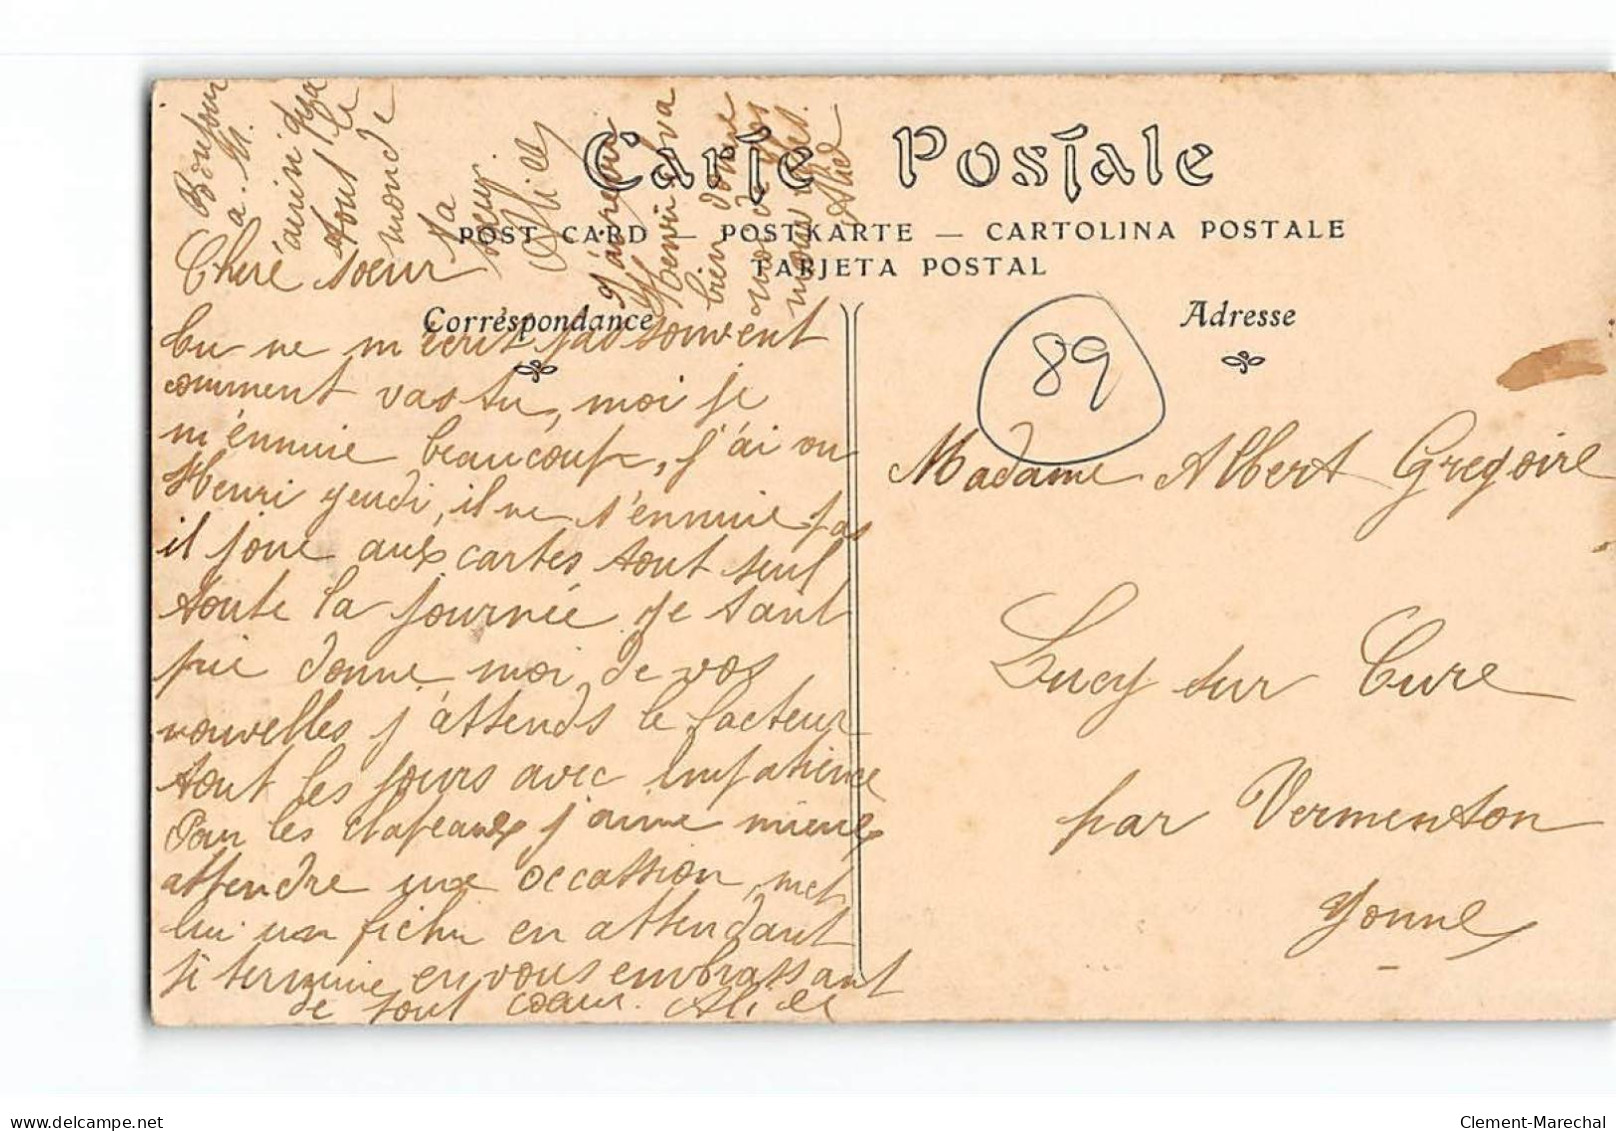 Carte Postale
POST CARD — POSTKARTE — CARTOLINA POSTALE
TARJETA POSTAL
Correspondance
Adresse
89
Bonsoir
a M.
tout le
monde
ta
soeur
Alice
Henri va
bien donne
moi de tes
nouvelles.
Alice
Chere soeur
tu ne m'écrit pas souvent
comment vas tu, moi je
m'énnuie beaucoup, j'ai vu
Henri jeudi, il ne s'énnuie pas
il joue aux cartes tout seul
toute la journée je t'ant
prie donne moi de vos
nouvelles j'attends le facteur
tout les jours avec impatience
Pour les chapeaux j'aime mieux
attendre une occassion, met
lui un fichu en attendant
je termine en vous embrassant
de tout coeur. Alice
Madame Albert Gregoire
Lucy sur Cure
par Vermenton
Yonne
delcampe.net
Clement-Marechal